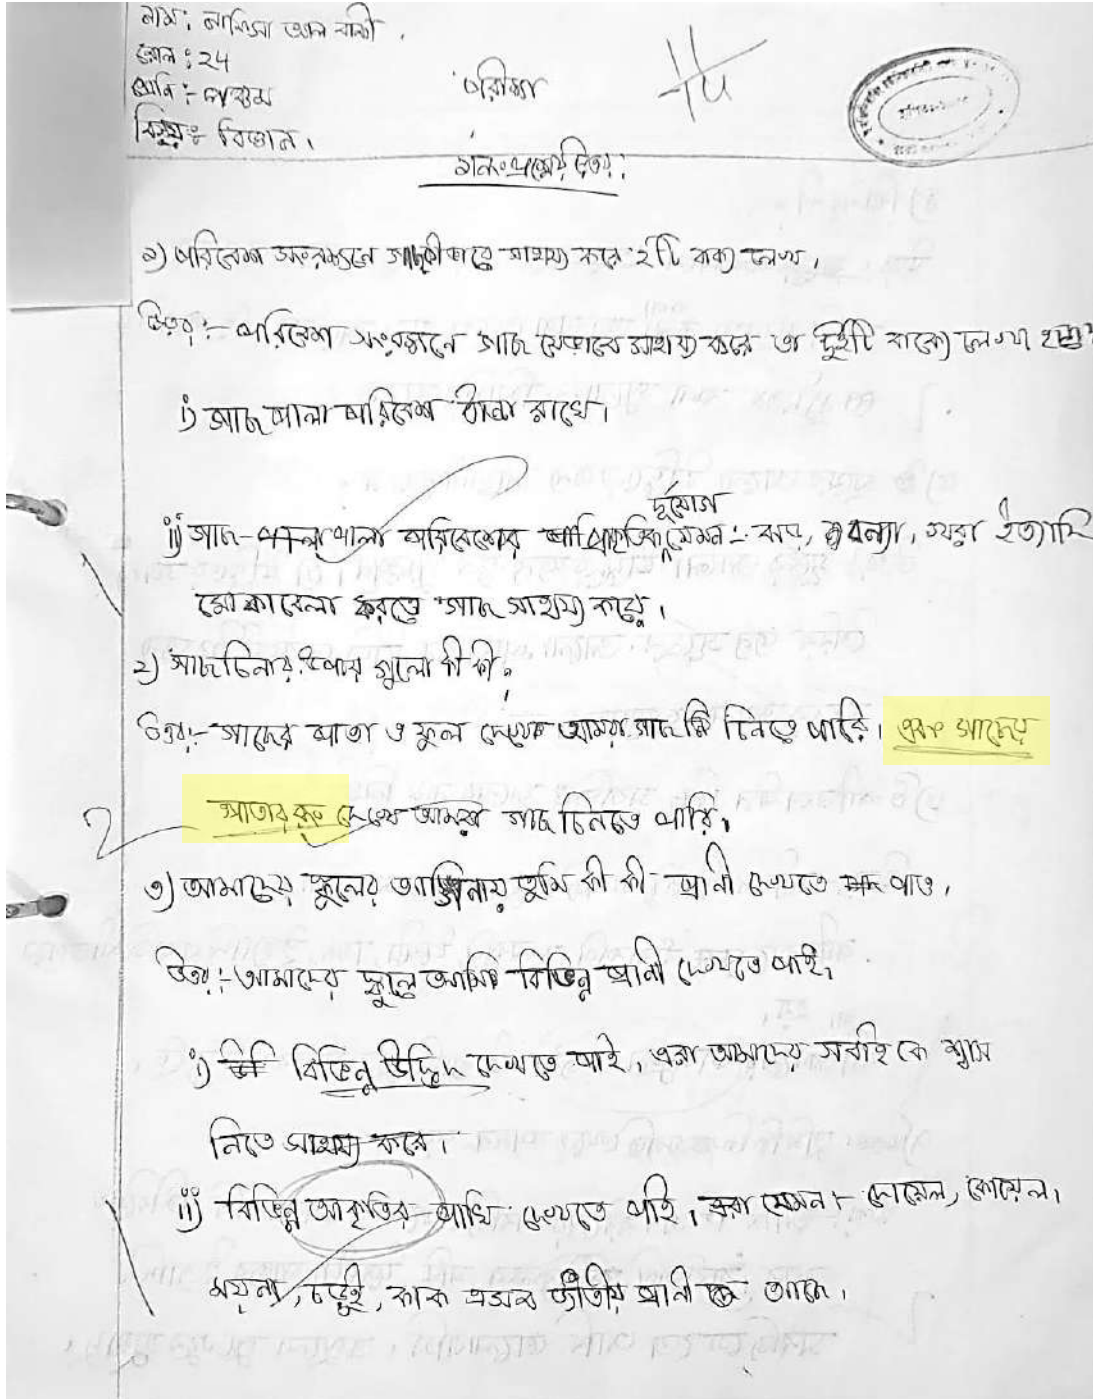 নাম: নাফিসা
রোল: 24
শ্রেনি:- পঞ্চম
বিষয়:- বিজ্ঞান।
পরীক্ষা
১নং প্রশ্নের উত্তর:
১) পরিবেশ সংরক্ষনে গাছ কীভাবে সাহায্য করে ২টি বাক্য লেখ।
উত্তর:- পরিবেশ সংরক্ষনে গাছ যেভাবে সাহায্য করে তা দুইটি বাক্যে লেখা হলো
i) গাছপালা পরিবেশ ঠান্ডা রাখে।
দূর্যোগ
ii) গাছ-পালা পরিবেশের প্রাকৃতিক যেমন:- ঝড়, বন্যা, খরা ইত্যাদি
মোকাবেলা করতে গাছ সাহায্য করে।
২) গাছ চিনার উপায় গুলো কী কী?
উত্তর:- গাছের পাতা ও ফুল দেখে আমরা গাছ চিনতে পারি। এবং গাছের
2 পাতার রং দেখে আমরা গাছ চিনতে পারি।
৩) আমাদের স্কুলের আঙ্গিনায় তুমি কী কী প্রানী দেখতে পাও।
উত্তর:- আমাদের স্কুলে আমি বিভিন্ন প্রানী দেখতে পাই।
i) বিভিন্ন উদ্ভিদ দেখতে পাই, এরা আমাদের সবাইকে শ্বাস
নিতে সাহায্য করে।
ii) বিভিন্ন আকৃতির পাখি দেখতে পাই, এরা যেমন:- দোয়েল, কোয়েল,
ময়না, চড়ুই, কাক এসব জাতীয় প্রানী আছে।